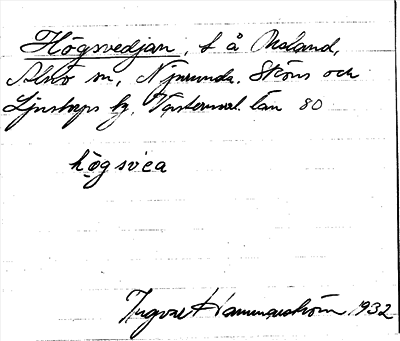 Högsvedjan, t å Åland,
Alnö sn, Njurunda, Sköns och
Ljustorps tg, Västernorrl. län 80
högsvea
Ingvar Hammarström 1932